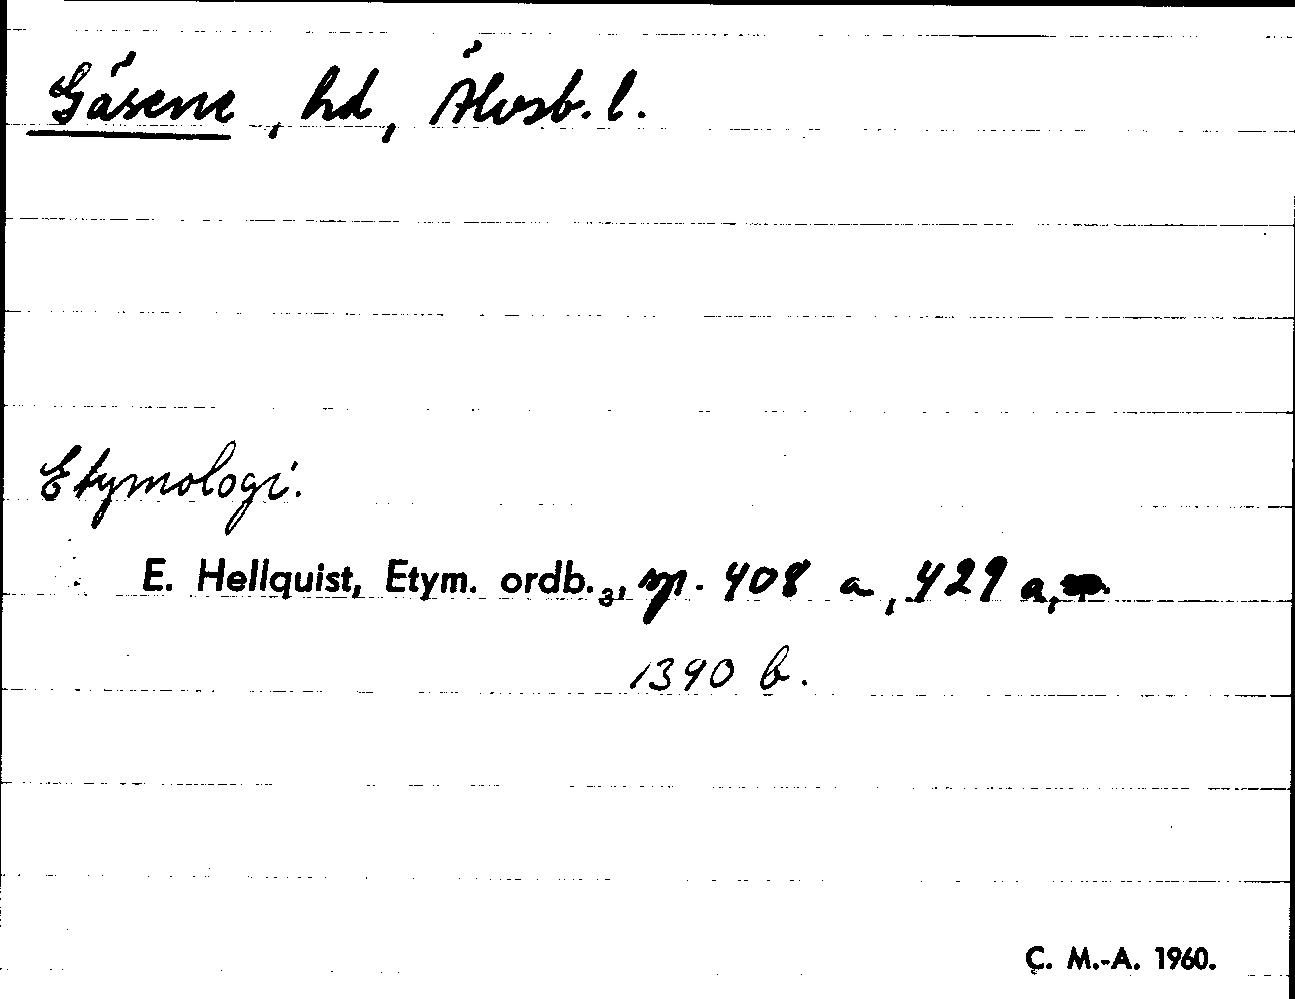 Gäsene, hd, Älvsb. l.
Etymologi.
E. Hellquist, Etym. ordb.₃, sp. 408 a, 429 a,
1390 b.
C. M.-A. 1960.